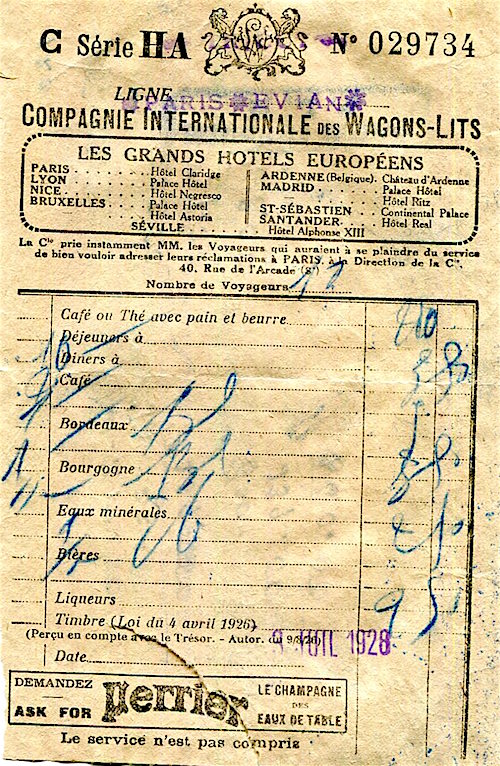 C Série HA N° 029734
LIGNE PARIS * EVIAN *
COMPAGNIE INTERNATIONALE DES WAGONS-LITS
LES GRANDS HOTELS EUROPÉENS
PARIS . . . . . . . . . Hôtel Claridge
LYON . . . . . . . . . Palace Hôtel
NICE . . . . . . . . . Hôtel Negresco
BRUXELLES . . . . . Palace Hôtel
Hôtel Astoria
ARDENNE (Belgique). Château d'Ardenne
MADRID . . . . . . . . Palace Hôtel
Hôtel Ritz
ST-SÉBASTIEN . . Continental Palace
SANTANDER . . . . . . Hôtel Real
SÉVILLE . . . . . . . . Hôtel Alphonse XIII
La Cie prie instamment MM. les Voyageurs qui auraient à se plaindre du service
de bien vouloir adresser leurs réclamations à PARIS, à la Direction de la Cie,
40, Rue de l'Arcade (8e)
Nombre de Voyageurs
Café ou Thé avec pain et beurre
Déjeuners à
Dîners à
Café
Bordeaux
Bourgogne
Eaux minérales
Bières
Liqueurs
9 50
Timbre (Loi du 4 avril 1926)
(Perçu en compte avec le Trésor. - Autor. du 9/8/26)
JUIL 1928
Date
DEMANDEZ
ASK FOR
perrier
LE CHAMPAGNE
DES
EAUX DE TABLE
Le service n'est pas compris